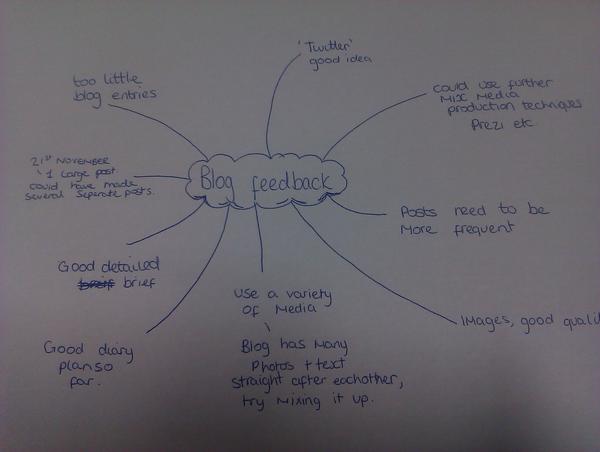 'Twitter'
good idea
too little
blog entries
could use further
Mix Media
production techniques
Prezi etc.
21st November
1 Large post
could have made
several seperate posts.
Blog feedback
Posts need to be
More frequent
Good detailed
brief
Use a variety
of Media
Blog has Many
Photos + text
straight after eachother,
try Mixing it up.
Images, good quali
Good diary
plan so
far.